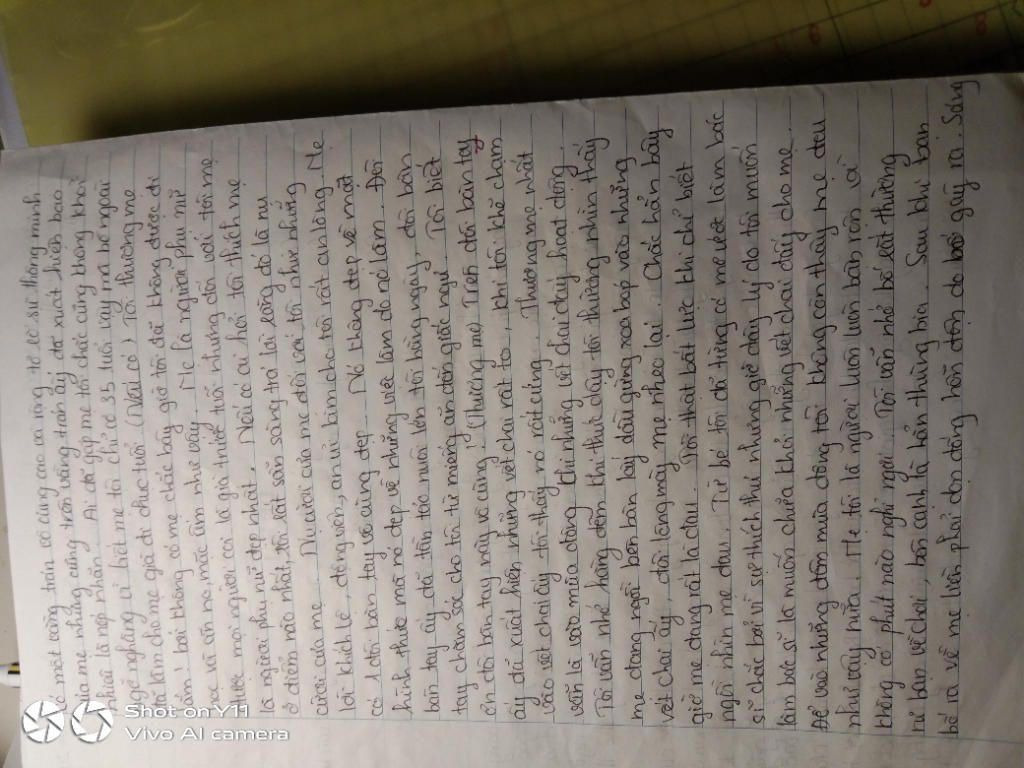 có một vầng trán vô cùng cao và rộng, tỏ rõ sự thông minh
của mẹ nhưng cũng trên vầng trán ấy đã xuất hiện bao
nhiêu là nếp nhăn. Ai đã gặp mẹ tôi chắc cũng không khỏi
ngỡ ngàng vì biết mẹ tôi chỉ có 35 tuổi vậy mà bề ngoài
đã làm cho mẹ già đi chục tuổi (Nếu có) Tôi thương mẹ
lắm! bởi không có mẹ chắc bây giờ tôi đã không được đi
học và ăn no mặc ấm như vậy. Mẹ là người phụ nữ
được mọi người coi là già trước tuổi nhưng đối với tôi mẹ
là người phụ nữ đẹp nhất. Nếu có ai hỏi tôi thích mẹ
ở điểm nào nhất, tôi rất sẵn sàng trả lời rằng đó là nụ
cười của mẹ. Nụ cười của mẹ đối với tôi như những
lời khích lệ, động viên, an ủi làm cho tôi rất an lòng. Mẹ
có 1 đôi bàn tay vô cùng đẹp. Nó không đẹp về mặt
hình thức mà nó đẹp về những việc làm do nó làm. Đôi
bàn tay ấy đã tần tảo nuôi lớn tôi hằng ngày, đôi bàn
tay chăm sóc cho tôi từ miếng ăn đến giấc ngủ. Tôi biết
ơn đôi bàn tay này vô cùng! (Thương mẹ) Trên đôi bàn tay
ấy đã xuất hiện những vết chai rất to, khi tôi khẽ chạm
vào vết chai ấy tôi thấy nó rất cứng. Thương mẹ nhất
vẫn là vào mùa đông khi những vết chai ấy hoạt động.
Tôi vẫn nhớ hằng đêm khi thức dậy tôi thường nhìn thấy
mẹ đang ngồi bên bàn lấy dầu gừng xoa bóp vào những
vết chai ấy, đôi lông mày mẹ nheo lại. Chắc hẳn bây
giờ mẹ đang rất là đau. Tôi thật bất lực khi chỉ biết
ngồi nhìn mẹ đau. Từ bé tôi đã từng có mơ ước làm bác
sĩ chắc bởi vì sự thích thú nhưng giờ đây lý do tôi muốn
làm bác sĩ là muốn chữa khỏi những vết chai ấy cho mẹ.
Để vào những đêm mùa đông tôi không còn thấy mẹ đau
như vậy nữa. Mẹ tôi là người luôn luôn bận rộn và
không có phút nào nghỉ ngơi. Tôi vẫn nhớ bố tôi thường
rủ bạn về chơi, bên cạnh là hẳn thùng bia. Sau khi bạn
bố ra về mẹ liền phải dọn đống hỗn độn do bố gây ra. Sáng
Shot on Y11
Vivo AI camera